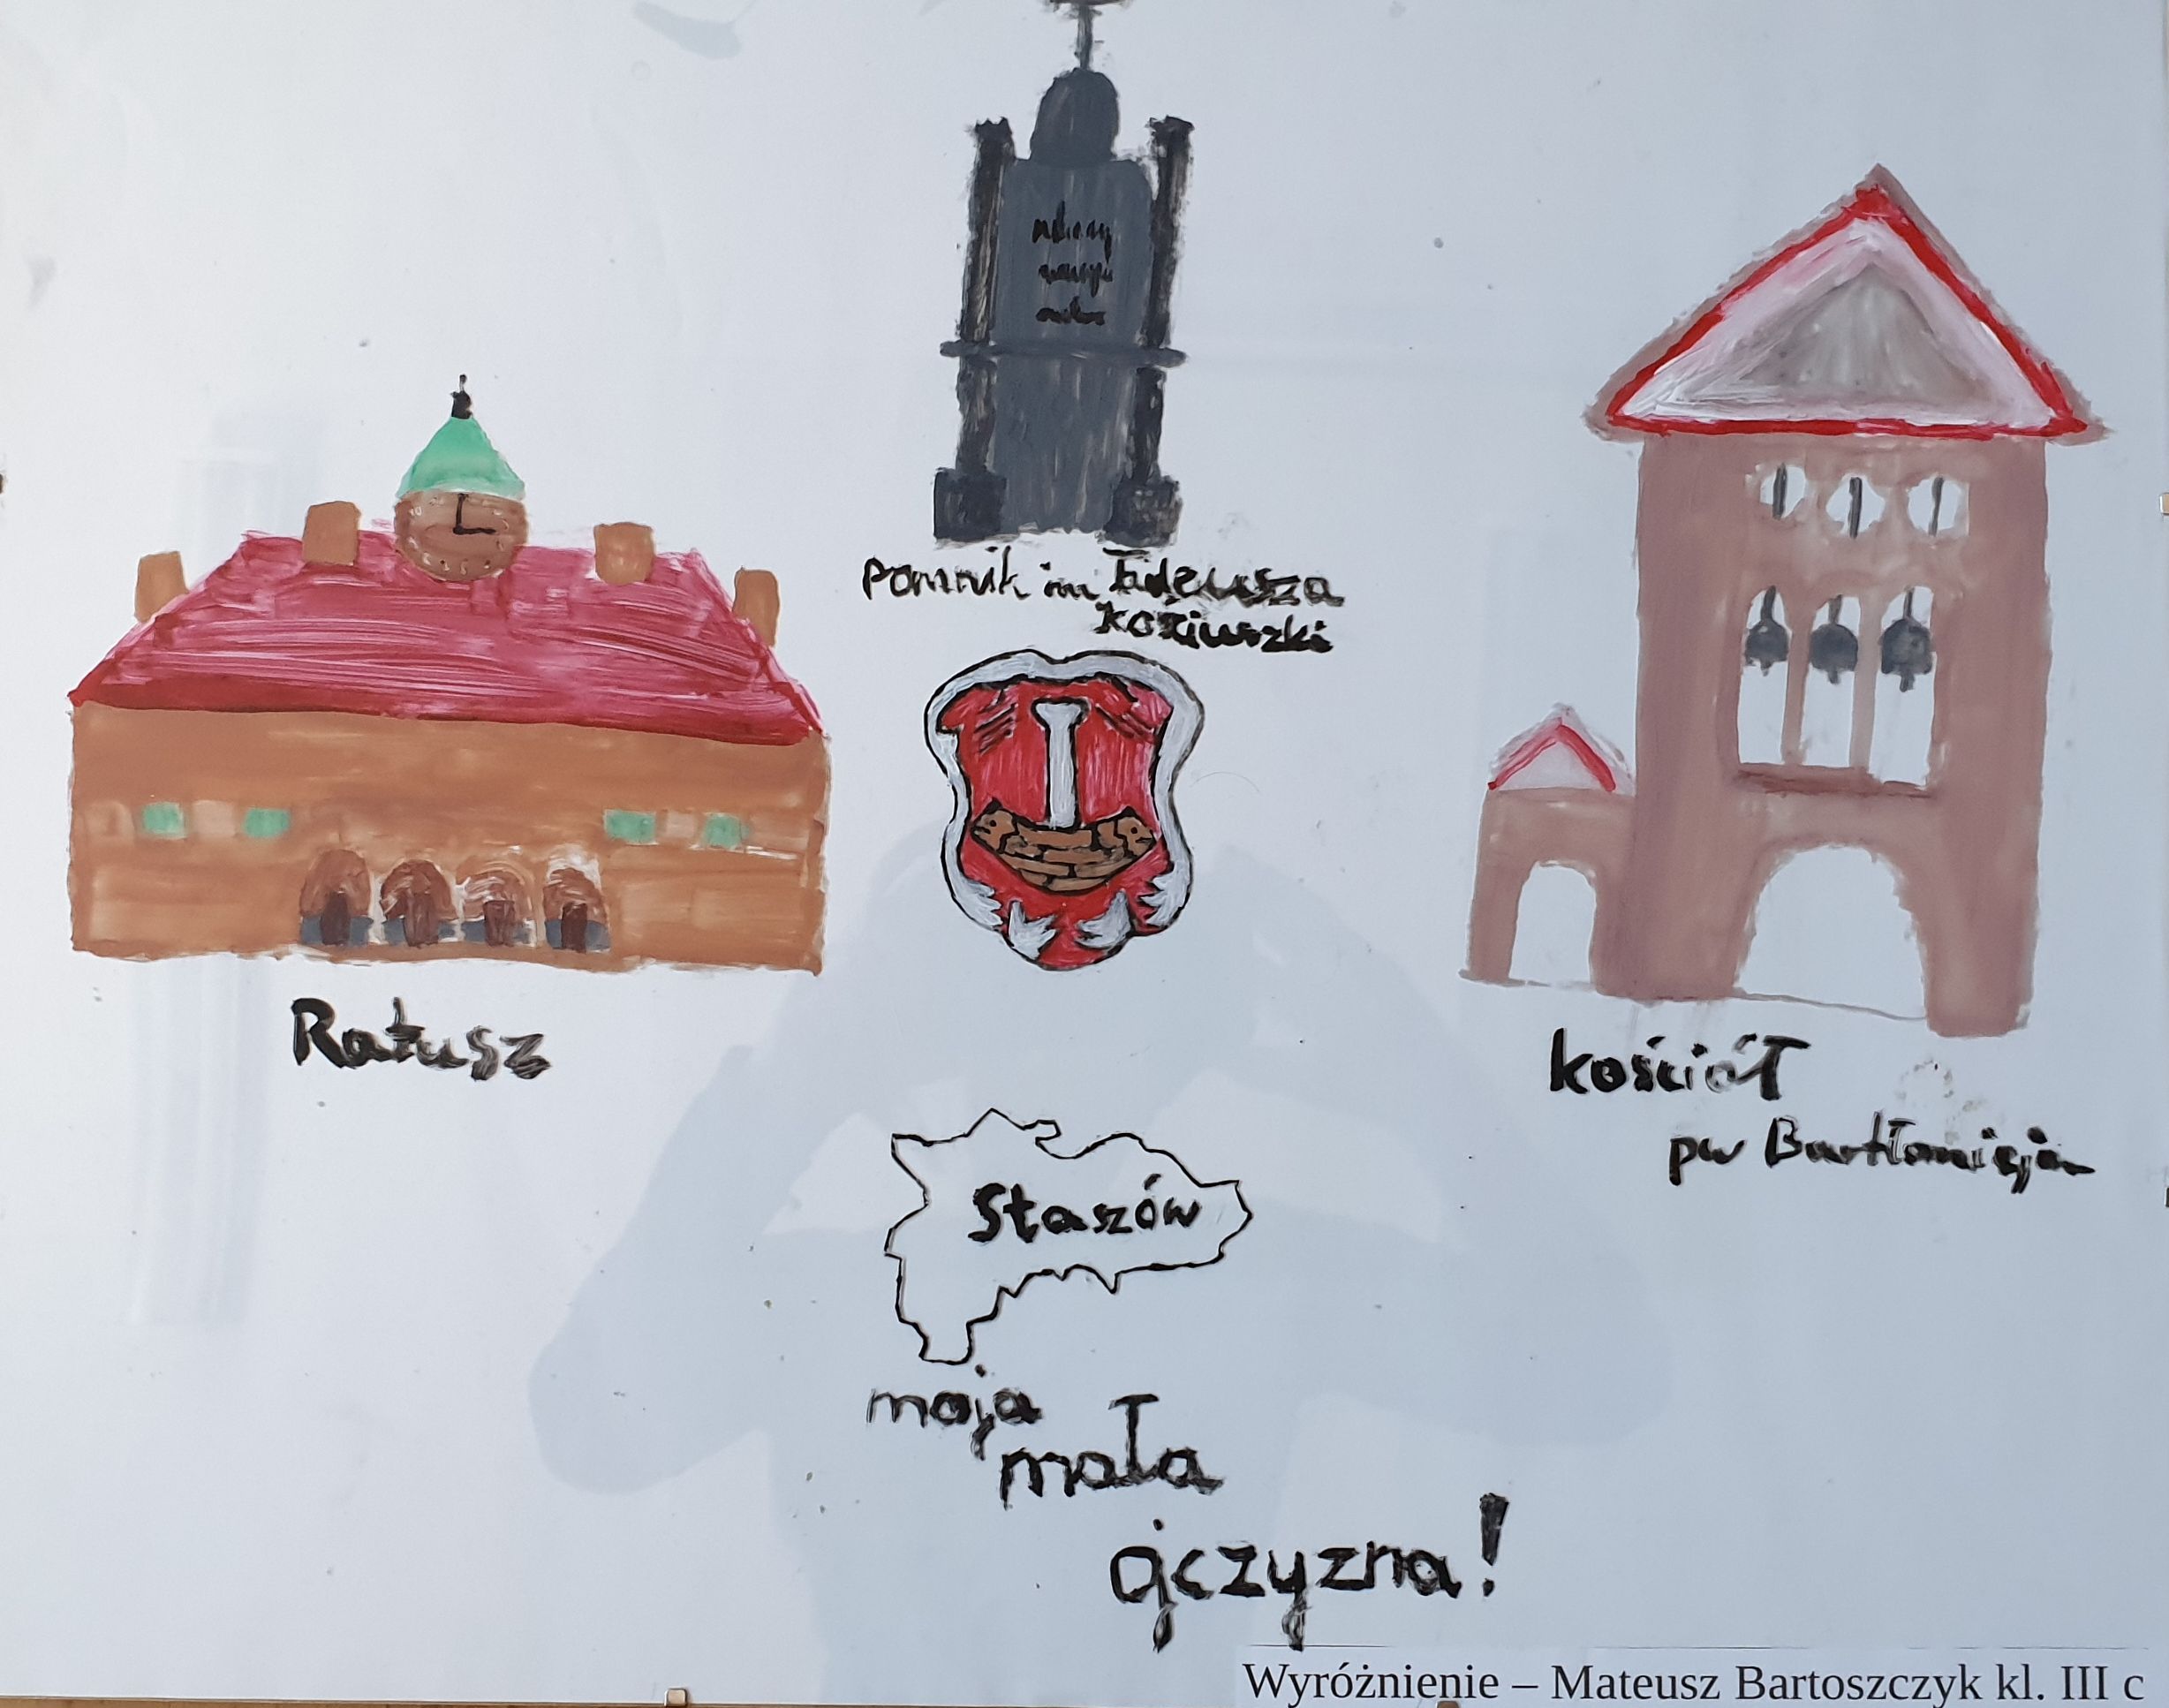 Pomnik im Tadeusza
Kościuszki
Ratusz
kościół
pw Bartłomieja
Staszów
moja
mała
ojczyzna!
Wyróżnienie – Mateusz Bartoszczyk kl. III c